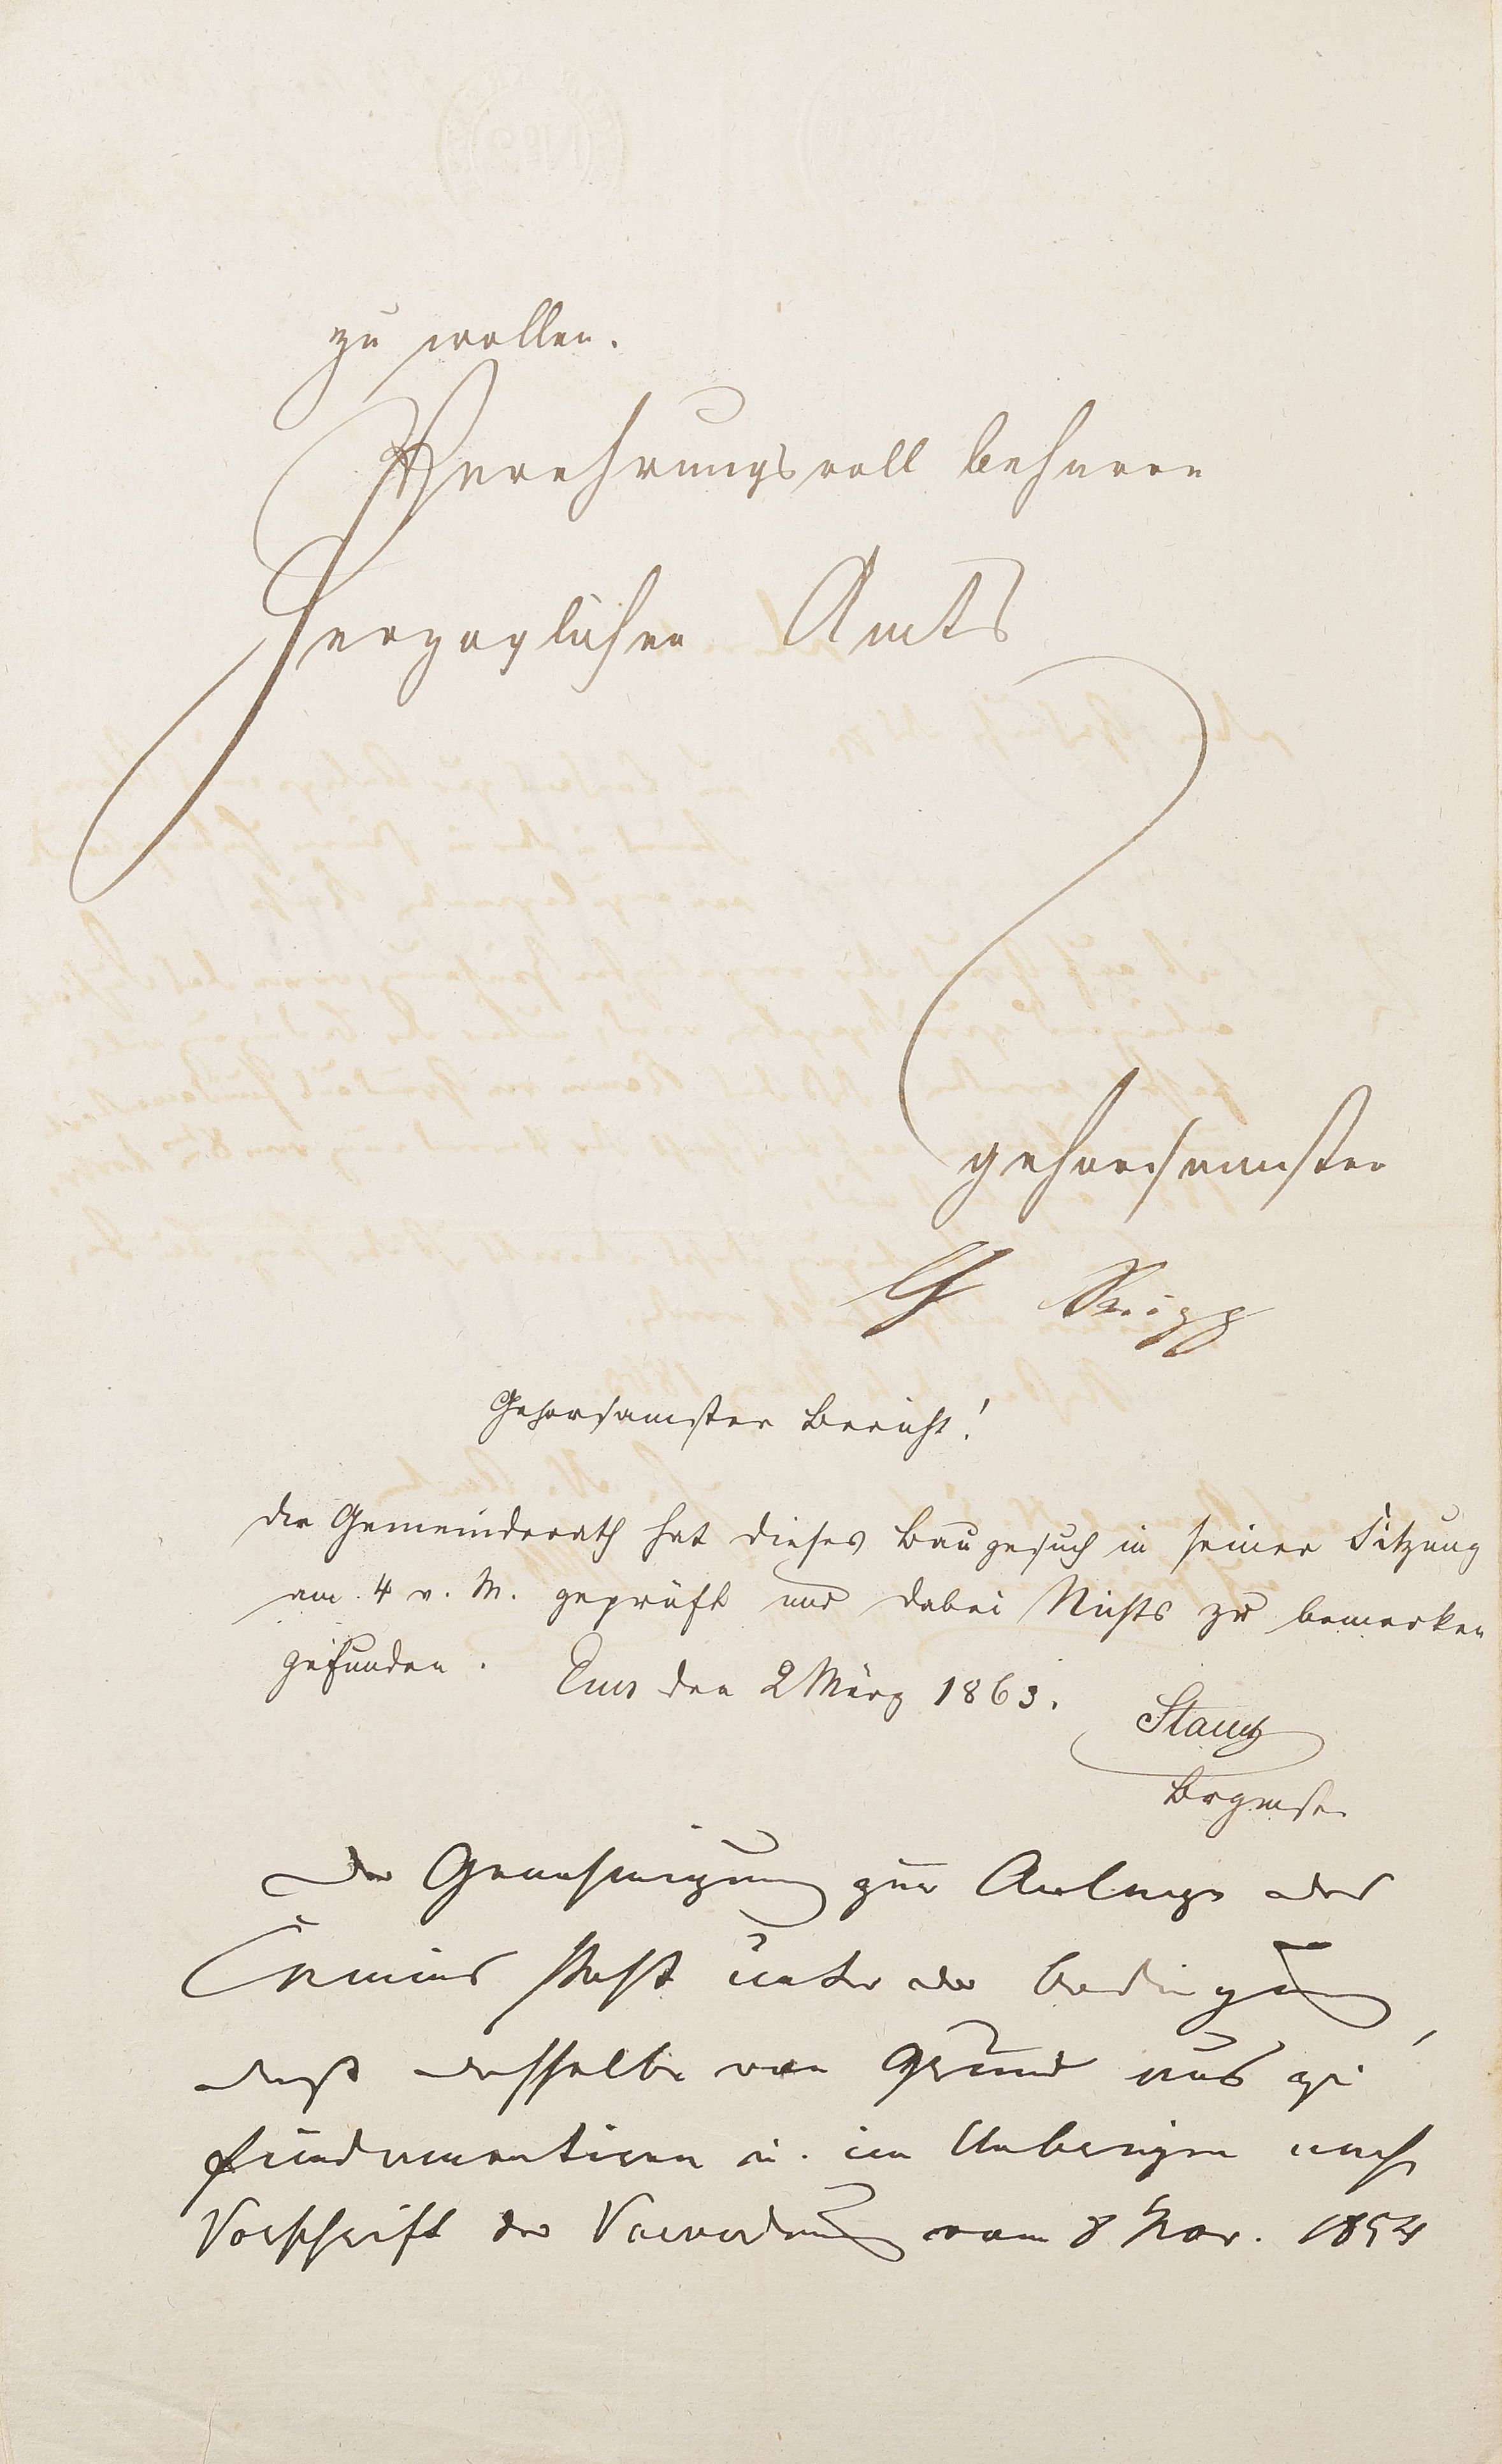 zu wollen.
Verehrungsvoll beharre
Herzoglichen Amts
gehorsamster
Gehorsamster Bericht!
der Gemeinderath hat dieses Baugesuch in seiner Sitzung
am 4 v. M. geprüft und dabei Nichts zu bemerken
gefunden.
Ems den 2 März 1863.
Stautz
Brgmstr
Der Genehmigung zur Anlage des
Camins steht unter der Bedingung,
daß dasselbe von Grund aus zu
fundamentiren u. im Uebrigen nach
Vorschrift der Verordnung vom 8 Nov. 1854